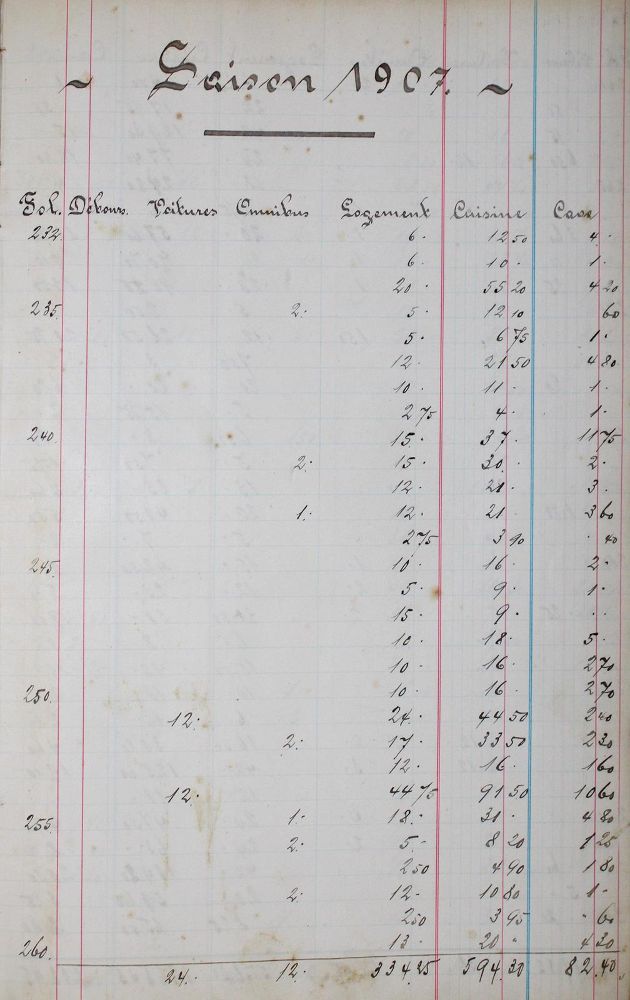 ~ Saison 1907. ~
Fol. Débours. Voitures Omnibus Logement Cuisine Cave
232. 6. 12 50 4.
6. 10. 1.
20. 55 20 4 20
235. 2. 5. 12 10 60
5. 6 75 1.
12. 21 50 4 80
10. 11. 1.
2 75 4. 1.
240. 15. 37. 11 75
2. 15. 30. 2.
12. 21. 3.
1. 12. 21. 3 60
2 75 3 90 . 40
245. 10. 16. 2.
5. 9. 1.
15. 9. . .
10. 18. 5.
10. 16. 2 70
250. 10. 16. 2 70
12. 24. 44 50 2 40
2. 17. 33 50 2 30
12. 16. 1 60
12. 44 75 91 50 10 60
255. 1. 18. 31. 4 80
2. 5. 8 20 1 25
2 50 4 90 1 80
2. 12. 10 80 1.
2 50 3 95 " 60
260. 13. 20 " 4 30
24. 12. 334.25 594.30 82.40